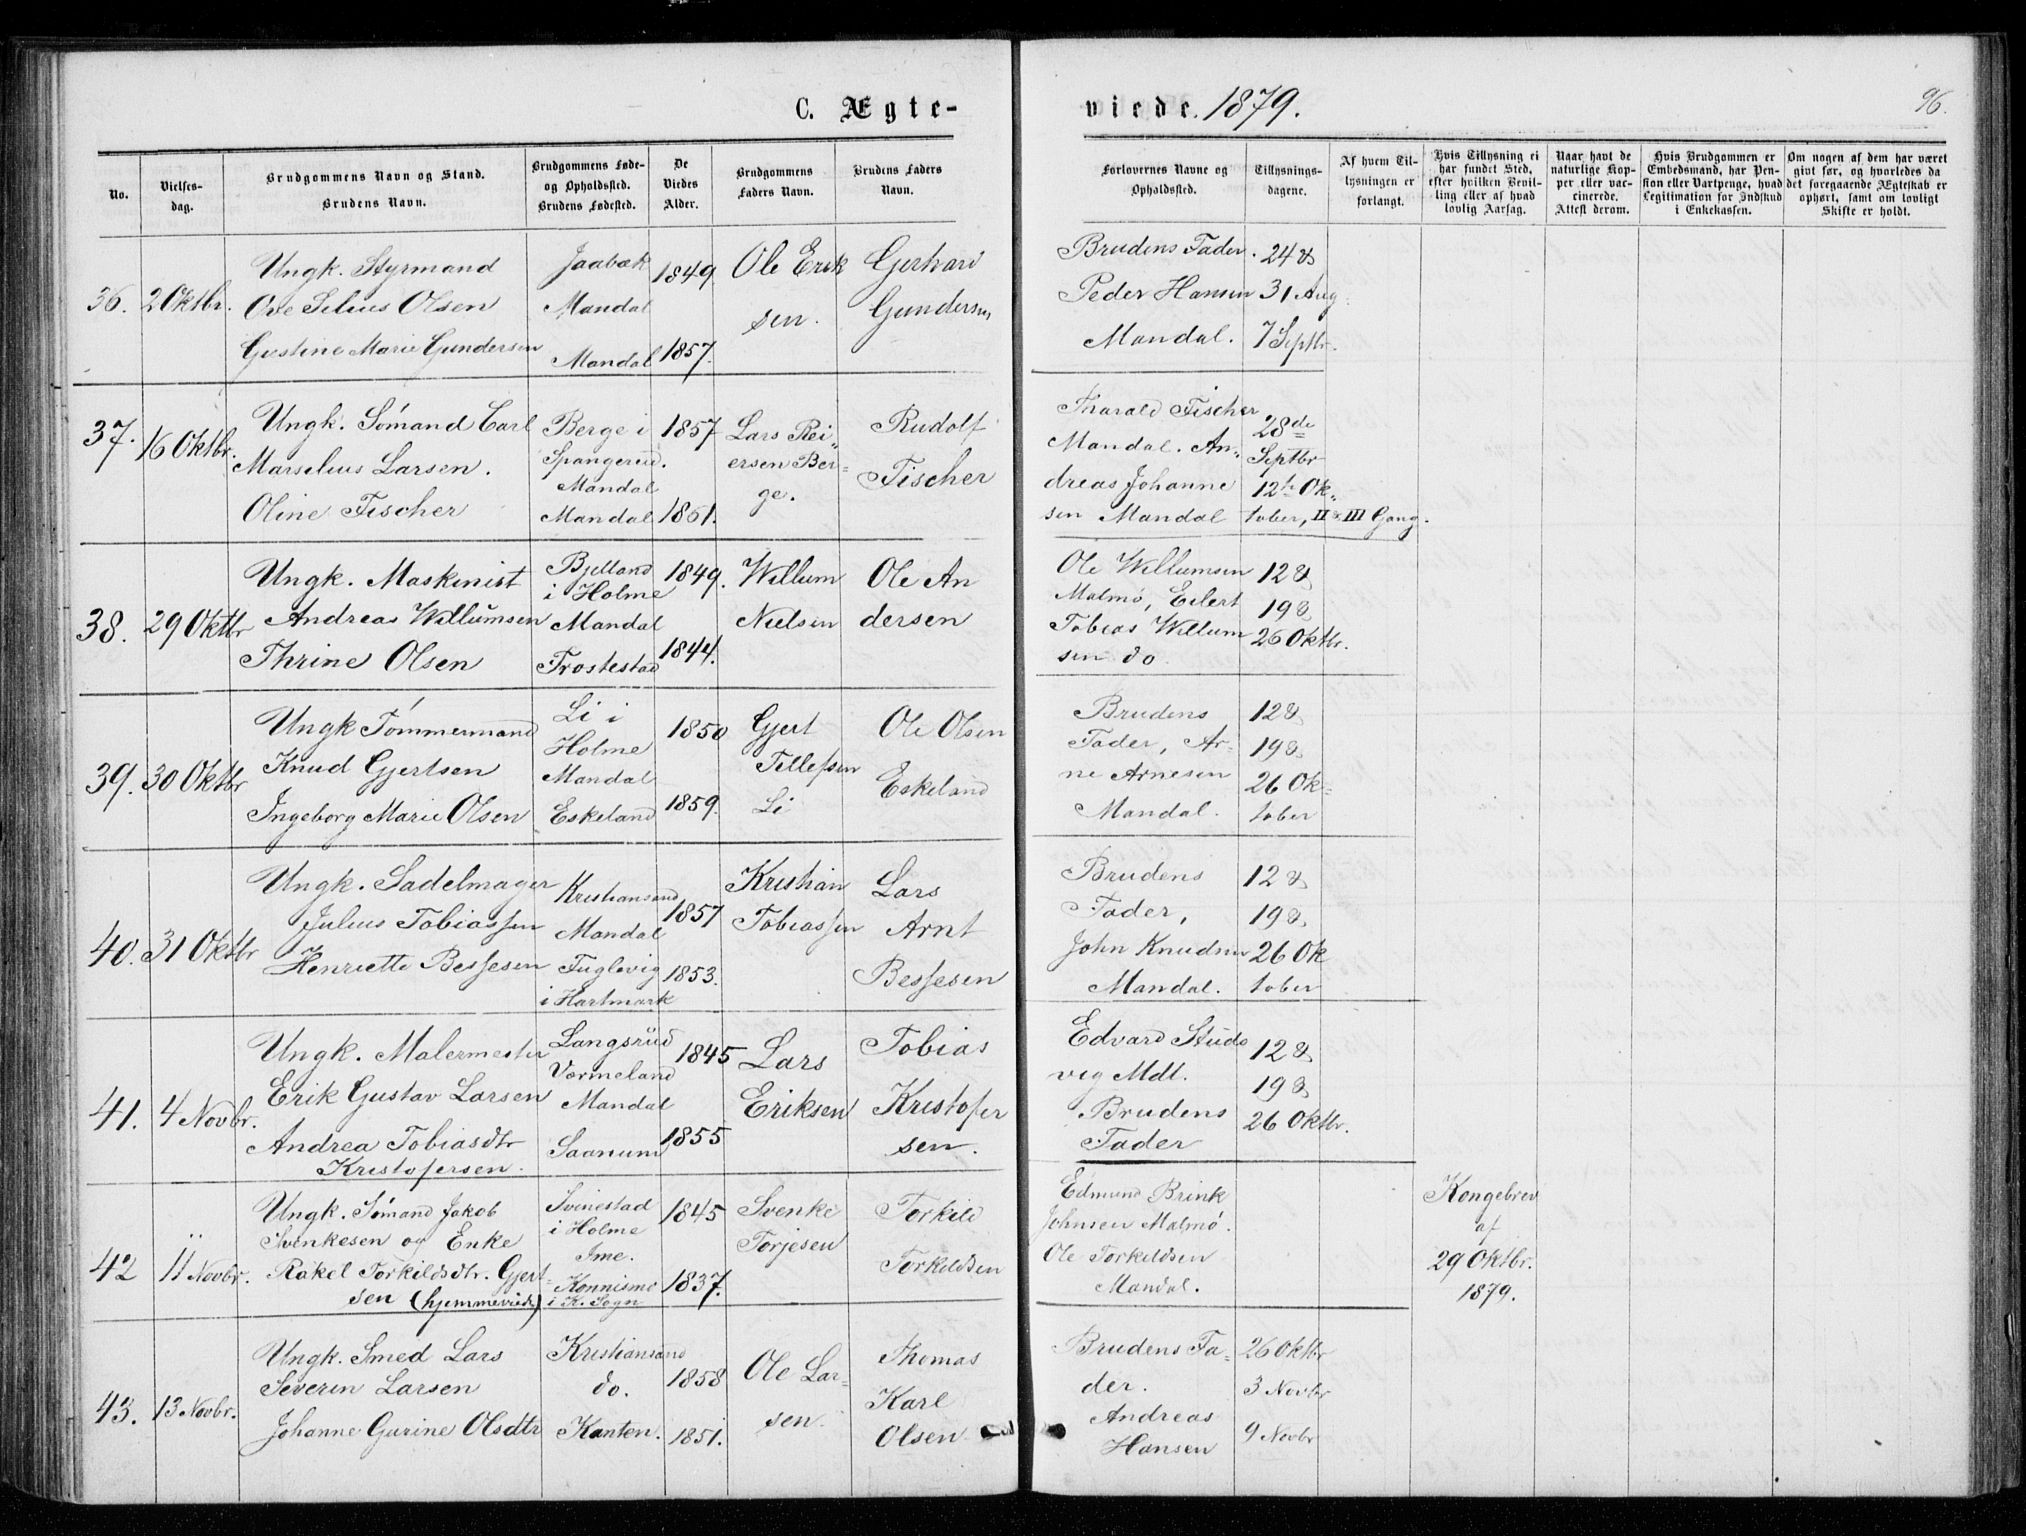 C. Ægte-
viede. 1879.
96.
No.
Vielses-
dag.
Brudgommens Navn og Stand.
Brudens Navn.
Brudgommens Føde-
og Opholdssted.
Brudens Fødested.
De
Viedes
Alder.
Brudgommens
Faders Navn.
Brudens Faders
Navn.
Forlovernes Navne og
Opholdssted.
Tillysnings-
dagene.
Af hvem Til-
lysningen er
forlangt.
Hvis Tillysning ei
har fundet Sted,
efter hvilken Bevil-
ling eller af hvad
lovlig Aarsag.
Naar havt de
naturlige Kop-
per eller vac-
cinerede.
Attest derom.
Hvis Brudgommen er
Embedsmand, har Pen-
sion eller Vartpenge, hvad
Legitimation for Indskud
i Enkekassen.
Om nogen af dem har været
givt før, og hvorledes da
det foregaaende Ægteskab er
ophørt, samt om lovligt
Skifte er holdt.
36.
2 Oktbr.
Ungk. Styrmand
Ove Selius Olsen
Gustine Marie Gundersen
Jaabæk
Mandal
Mandal
1849
1857.
Ole Erik
sen.
Gerhard
Gundersen
Brudens Fader.
Peder Hansen
Mandal.
24 &
31 Aug.
7 Septbr.
37.
16 Oktbr.
Ungk. Sømand Carl
Marselius Larsen.
Oline Fischer
Berge i
Spangereid.
Mandal
Mandal
1857
1861.
Lars Rei-
ersen Ber-
ge.
Rudolf
Fischer
Tharald Fischer
Mandal. An-
dreas Johanne
sen Mandal
28de
Septbr
12te Ok-
tober, II & III Gang.
38.
29 Oktbr
Ungk. Maskinist
Andreas Willumsen
Thrine Olsen
Bjelland
i Holme
Mandal
Trostestad
1849.
1844.
Willum
Nielsen
Ole An
dersen
Ole Willumsen
Malmø, Eilert
Tobias Willum
sen do
12 &
19 &
26 Oktbr.
39.
30 Oktbr
Ungk Tømmermand
Knud Gjertsen
Ingeborg Marie Olsen
Li i
Holme
Mandal
Eskeland
1850
1859.
Gjert
Tellefsen
Li
Ole Olsen
Eskeland
Brudens
Fader, Ar-
ne Arnesen
Mandal.
12 &
19 &
26 Ok-
tober
40.
31 Oktbr
Ungk. Sadelmager
Julius Tobiassen
Henriette Bessesen
Kristiansand
Mandal
Fuglevig
i Hartmark
1857
1853.
Kristian
Tobiassen
Lars
Arnt
Bessesen
Brudens
Fader,
John Knudsen
Mandal.
12 &
19 &
26 Ok
tober
41.
4 Novbr.
Ungk. Malermester
Erik Gustav Larsen
Andrea Tobiasdtr
Kristofersen.
Langsrud
Vormeland
Mandal
Saanum
1845
1855
Lars
Eriksen
Tobias
Kristofer
sen.
Edvard Studs
vig Mdl.
Brudens
Fader
12 &
19 &
26 Oktbr.
42
11 Novbr.
Ungk. Sømand Jakob
Svenkesen og Enke
Rakel Torkildsdtr. Gjert-
sen (hjemmeviede)
Svinestad
i Holme
Ime.
Konnismo
i K. Sogn
1845
1837.
Svenke
Torjesen
Torkild
Torkildsen
Edmund Brink
Johnsen Malmø.
Ole Torkildsen
Mandal.
Kongebrev
af
29 Oktbr.
1879.
43.
13 Novbr.
Ungk. Smed Lars
Severin Larsen
Johanne Gurine Olsdtr
Kristiansand
do.
Kanten.
1858
1851.
Ole Lar-
sen.
Thomas
Karl
Olsen
Brudens Fa-
der.
Andreas
Hansen
26 Oktbr
3 Novbr
9 Novbr